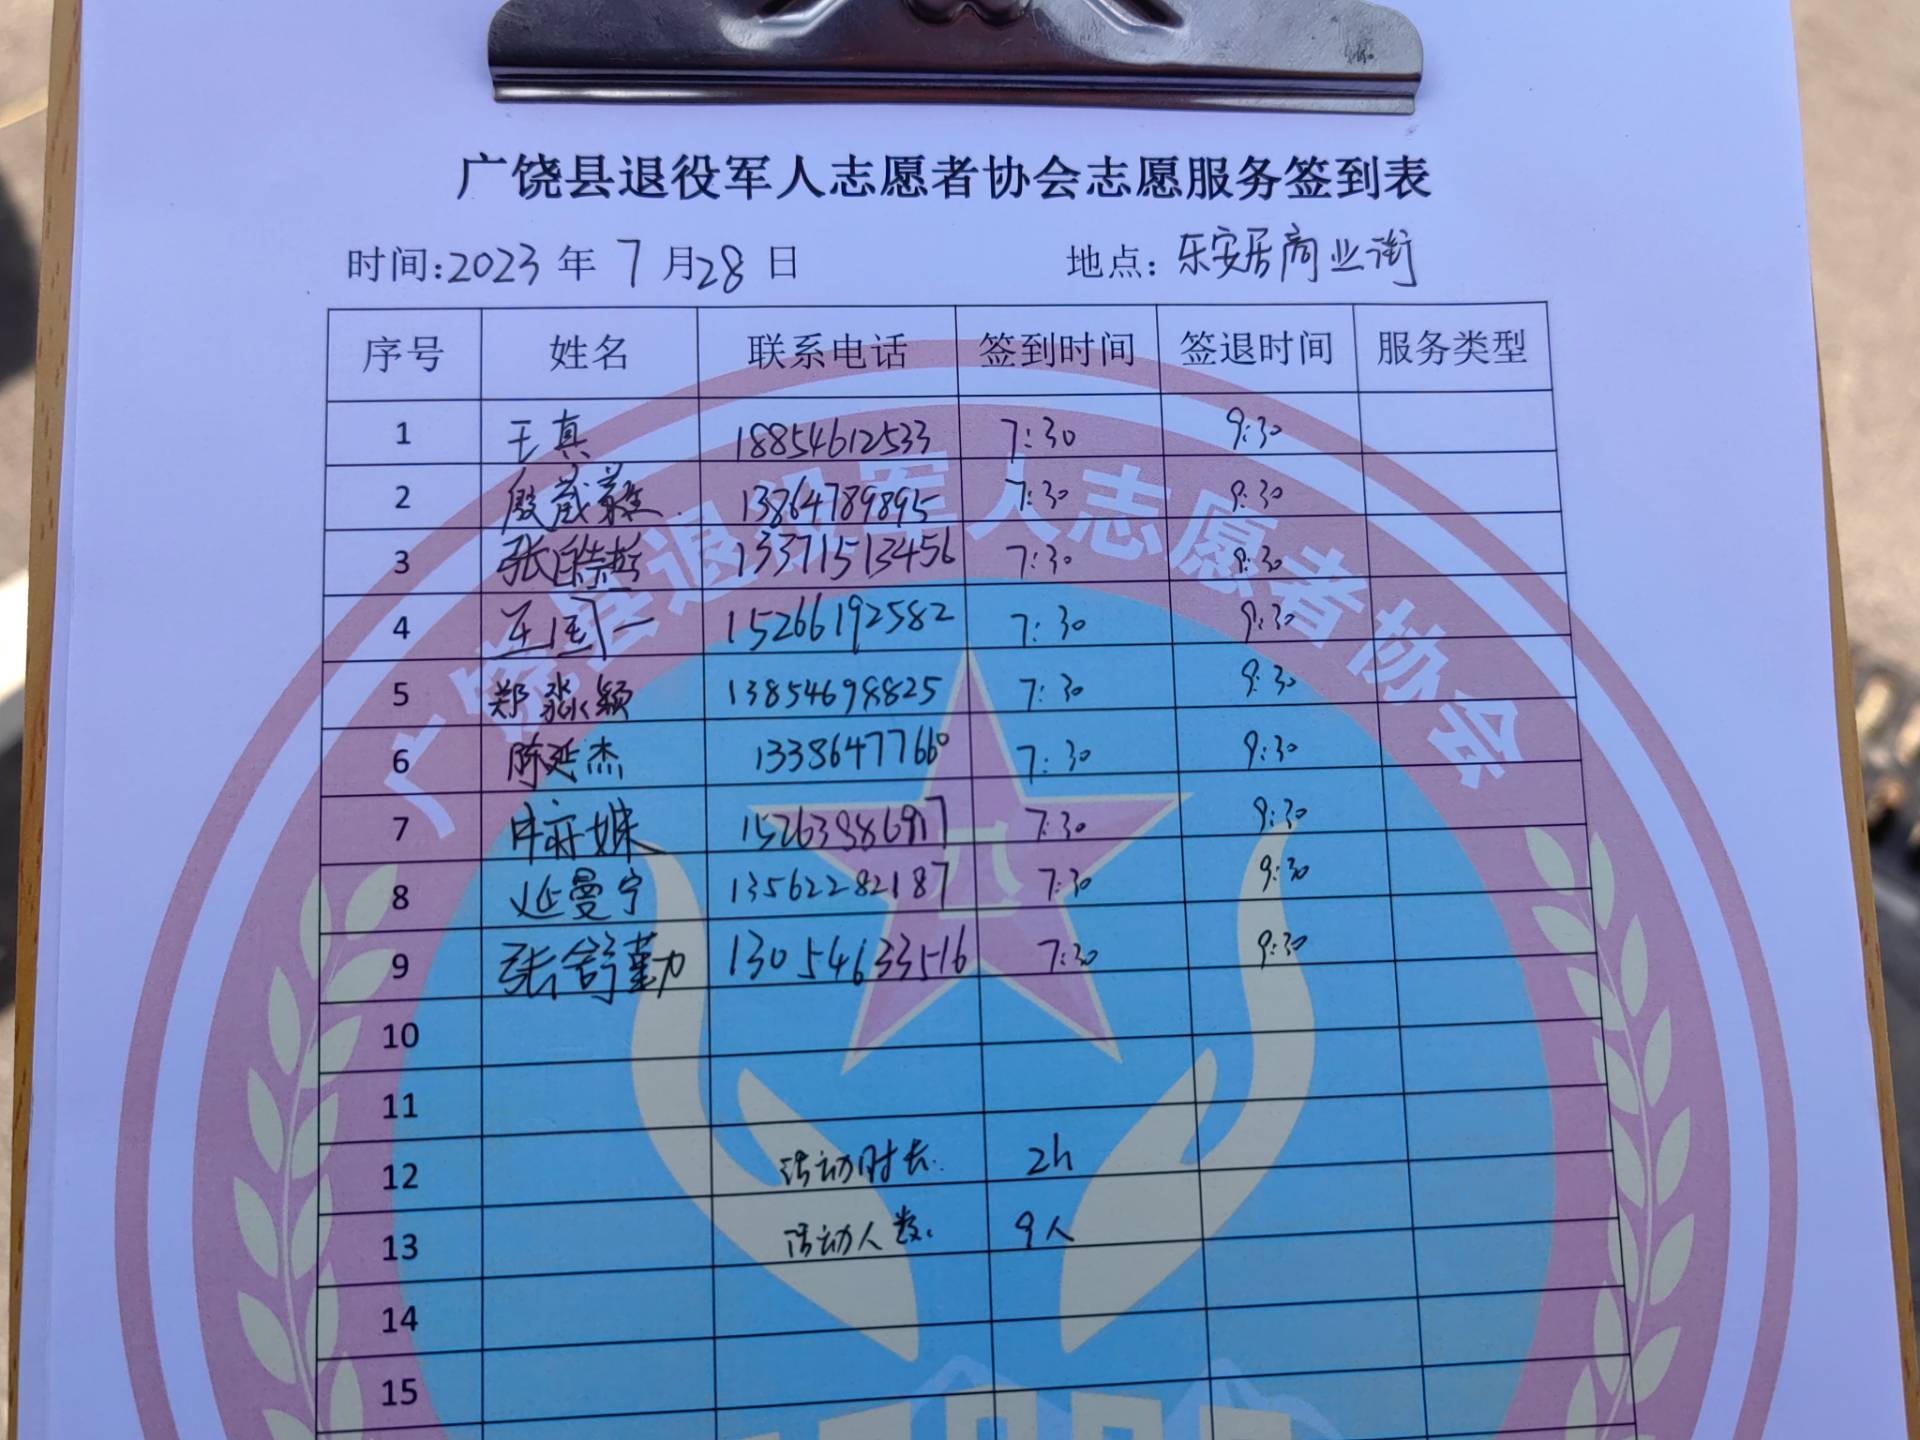 广饶县退役军人志愿者协会志愿服务签到表
时间:2023 年 7 月 28 日 地点: 乐安居商业街
序号 姓名 联系电话 签到时间 签退时间 服务类型
1 王真 18854612533 7:30 9:30
2 13864789895 7:30 9:30
3 张皓哲 13371513456 7:30 9:30
4 王国一 15266192582 7:30 9:30
5 郑淼颖 13854698825 7:30 9:30
6 陈延杰 13386477660 7:30 9:30
7 7:30 9:30
8 延曼宁 13562282187 7:30 9:30
9 张舒勤 13054633516 7:30 9:30
10
11
12 活动时长: 2h
13 活动人数: 9人
14
15
广饶县退役军人志愿者协会
八一